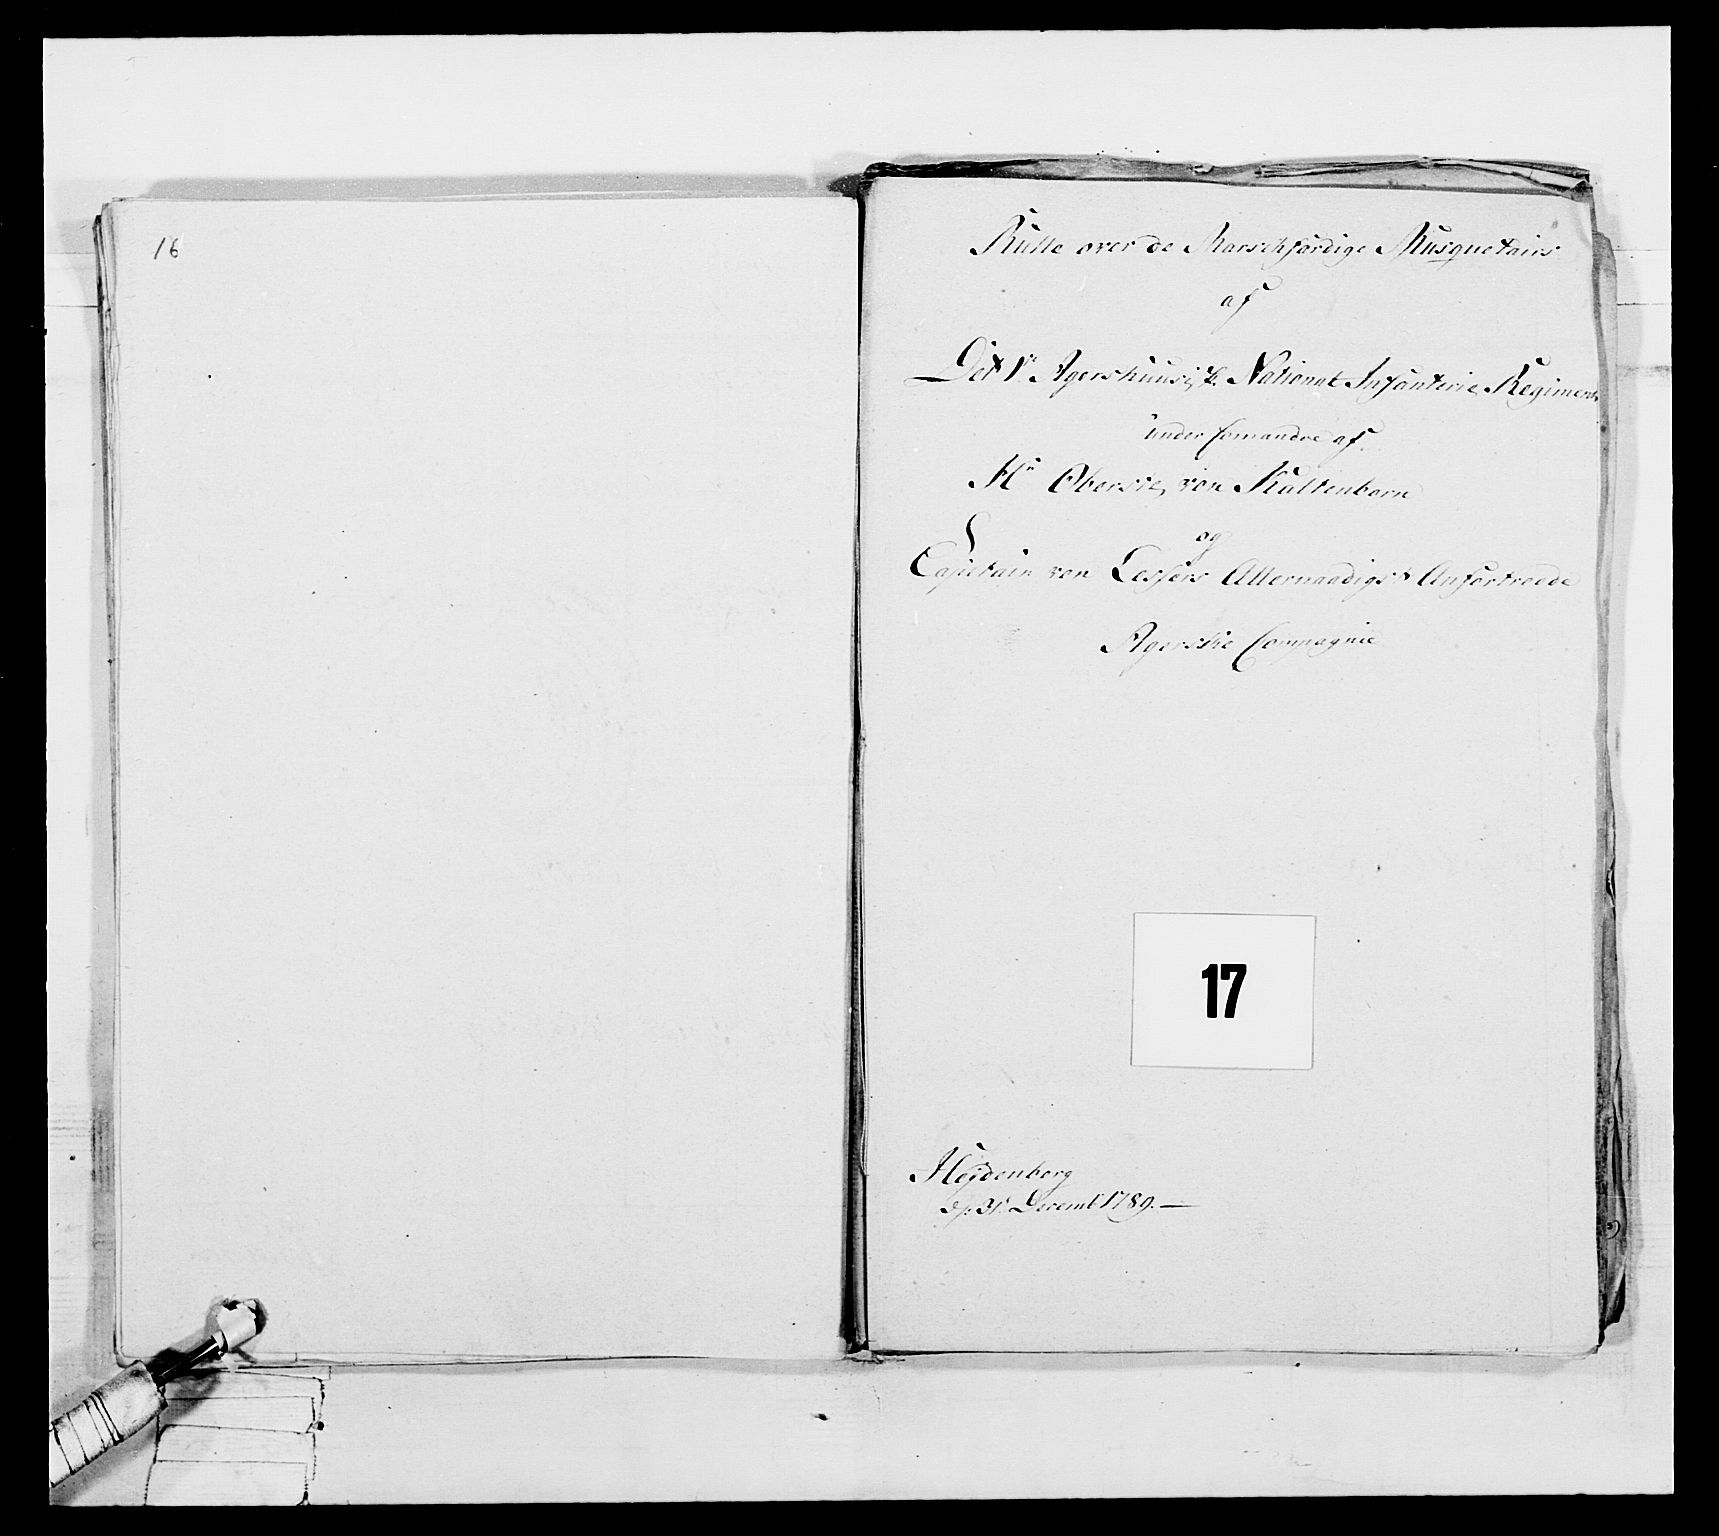 16
Rulle over de Marschfærdige Musquetairs
af
Det 1te Agershuusisk. National Infanterie Regiment
under Comandoe af
Hr Oberste von Kaltenborn
og
Capitain von Lessers Allernaadigst Anfortroede
Agerske Compagnie
17
Heydenberg
d. 31te Decembr 1789. —